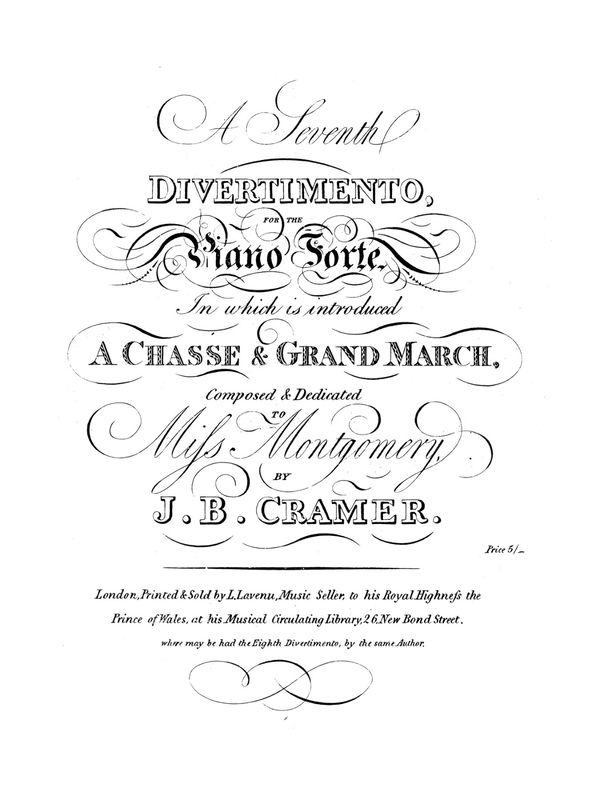 A Seventh
DIVERTIMENTO,
FOR THE
Piano Forte,
In which is introduced
A CHASSE & GRAND MARCH,
Composed & Dedicated
TO
Miſs Montgomery,
BY
J. B. CRAMER.
Price 5/_
London, Printed & Sold by L, Lavenu, Music Seller, to his Royal Highneſs the
Prince of Wales, at his Musical Circulating Library, 26, New Bond Street.
where may be had the Eighth Divertimento, by the same Author.